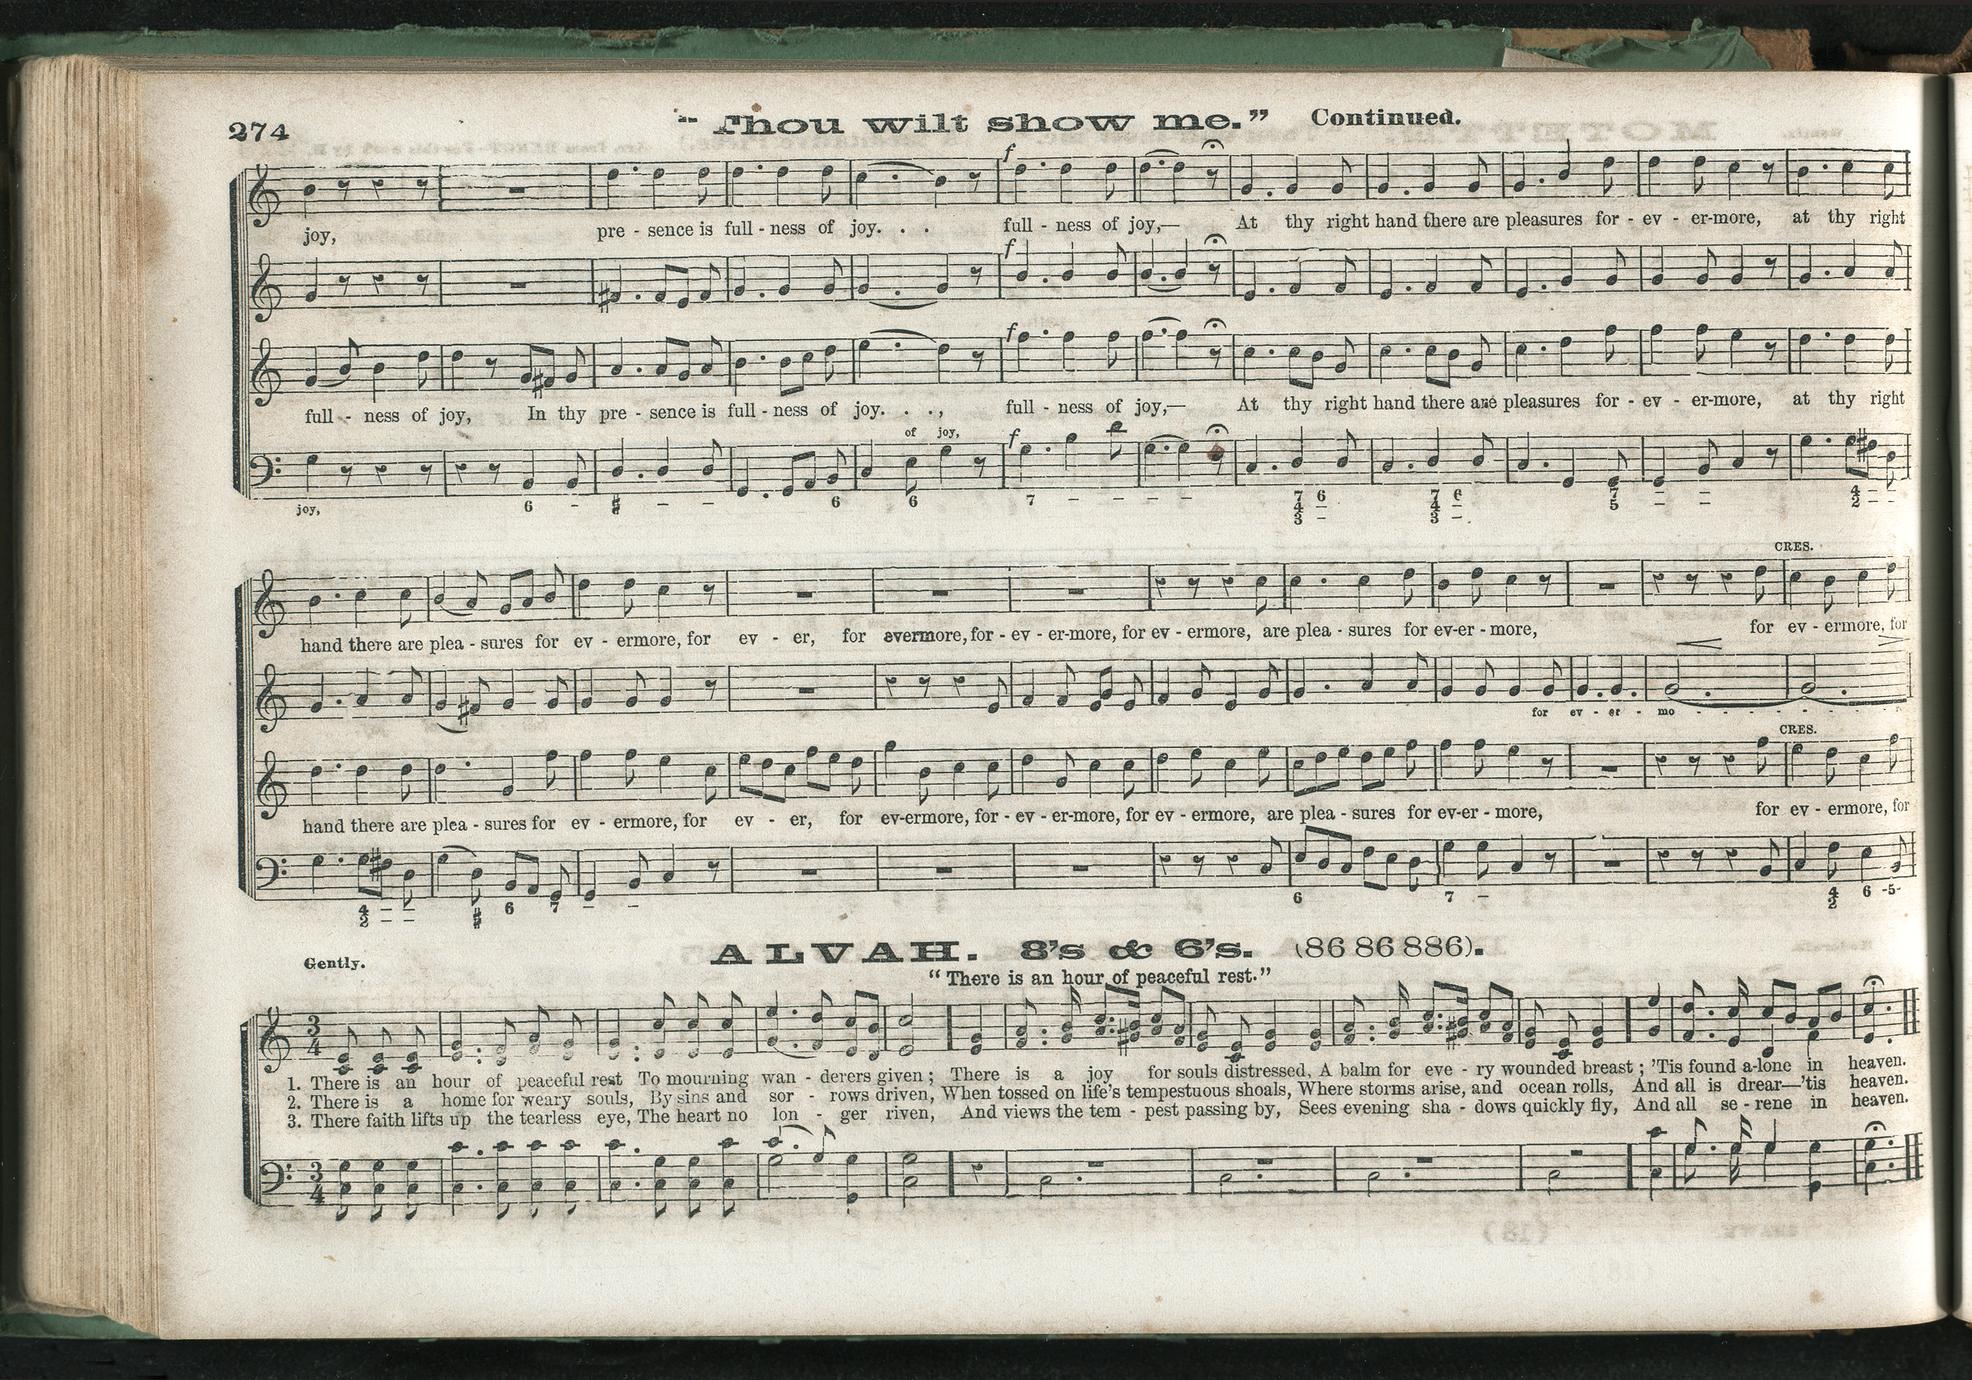 274
"Thou wilt show me." Continued.
f
joy, pre - sence is full - ness of joy. . . full - ness of joy,— At thy right hand there are pleasures for - ev - er-more, at thy right
f
f
full - ness of joy, In thy pre - sence is full - ness of joy. . ., full - ness of joy,— At thy right hand there are pleasures for - ev - er-more, at thy right
of joy,
f
joy, 6 - # - - 6 6 7 - - - - 7 6 7 6 7 - - 4 - -
4 - 4 - 5 2 - -
3 - 3 -
CRES.
hand there are plea - sures for ev - ermore, for ev - er, for evermore, for - ev - er-more, for ev - ermore, are plea - sures for ev-er - more, for ev - ermore, for
for ev - er - mo - - - - - - -
CRES.
hand there are plea - sures for ev - ermore, for ev - er, for ev-ermore, for - ev - er-more, for ev - ermore, are plea - sures for ev-er - more, for ev - ermore, for
4 - - # 6 7 - - 6 7 - 4 6 -5-
2 - - 2
ALVAH. 8's & 6's. (86 86 886).
Gently.
"There is an hour of peaceful rest."
3
4
1. There is an hour of peaceful rest To mourning wan - derers given; There is a joy for souls distressed, A balm for eve - ry wounded breast; 'Tis found a-lone in heaven.
2. There is a home for weary souls, By sins and sor - rows driven, When tossed on life's tempestuous shoals, Where storms arise, and ocean rolls, And all is drear—'tis heaven.
3. There faith lifts up the tearless eye, The heart no lon - ger riven, And views the tem - pest passing by, Sees evening sha - dows quickly fly, And all se - rene in heaven.
3
4